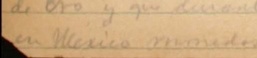 de oro y que durant
en México monedas